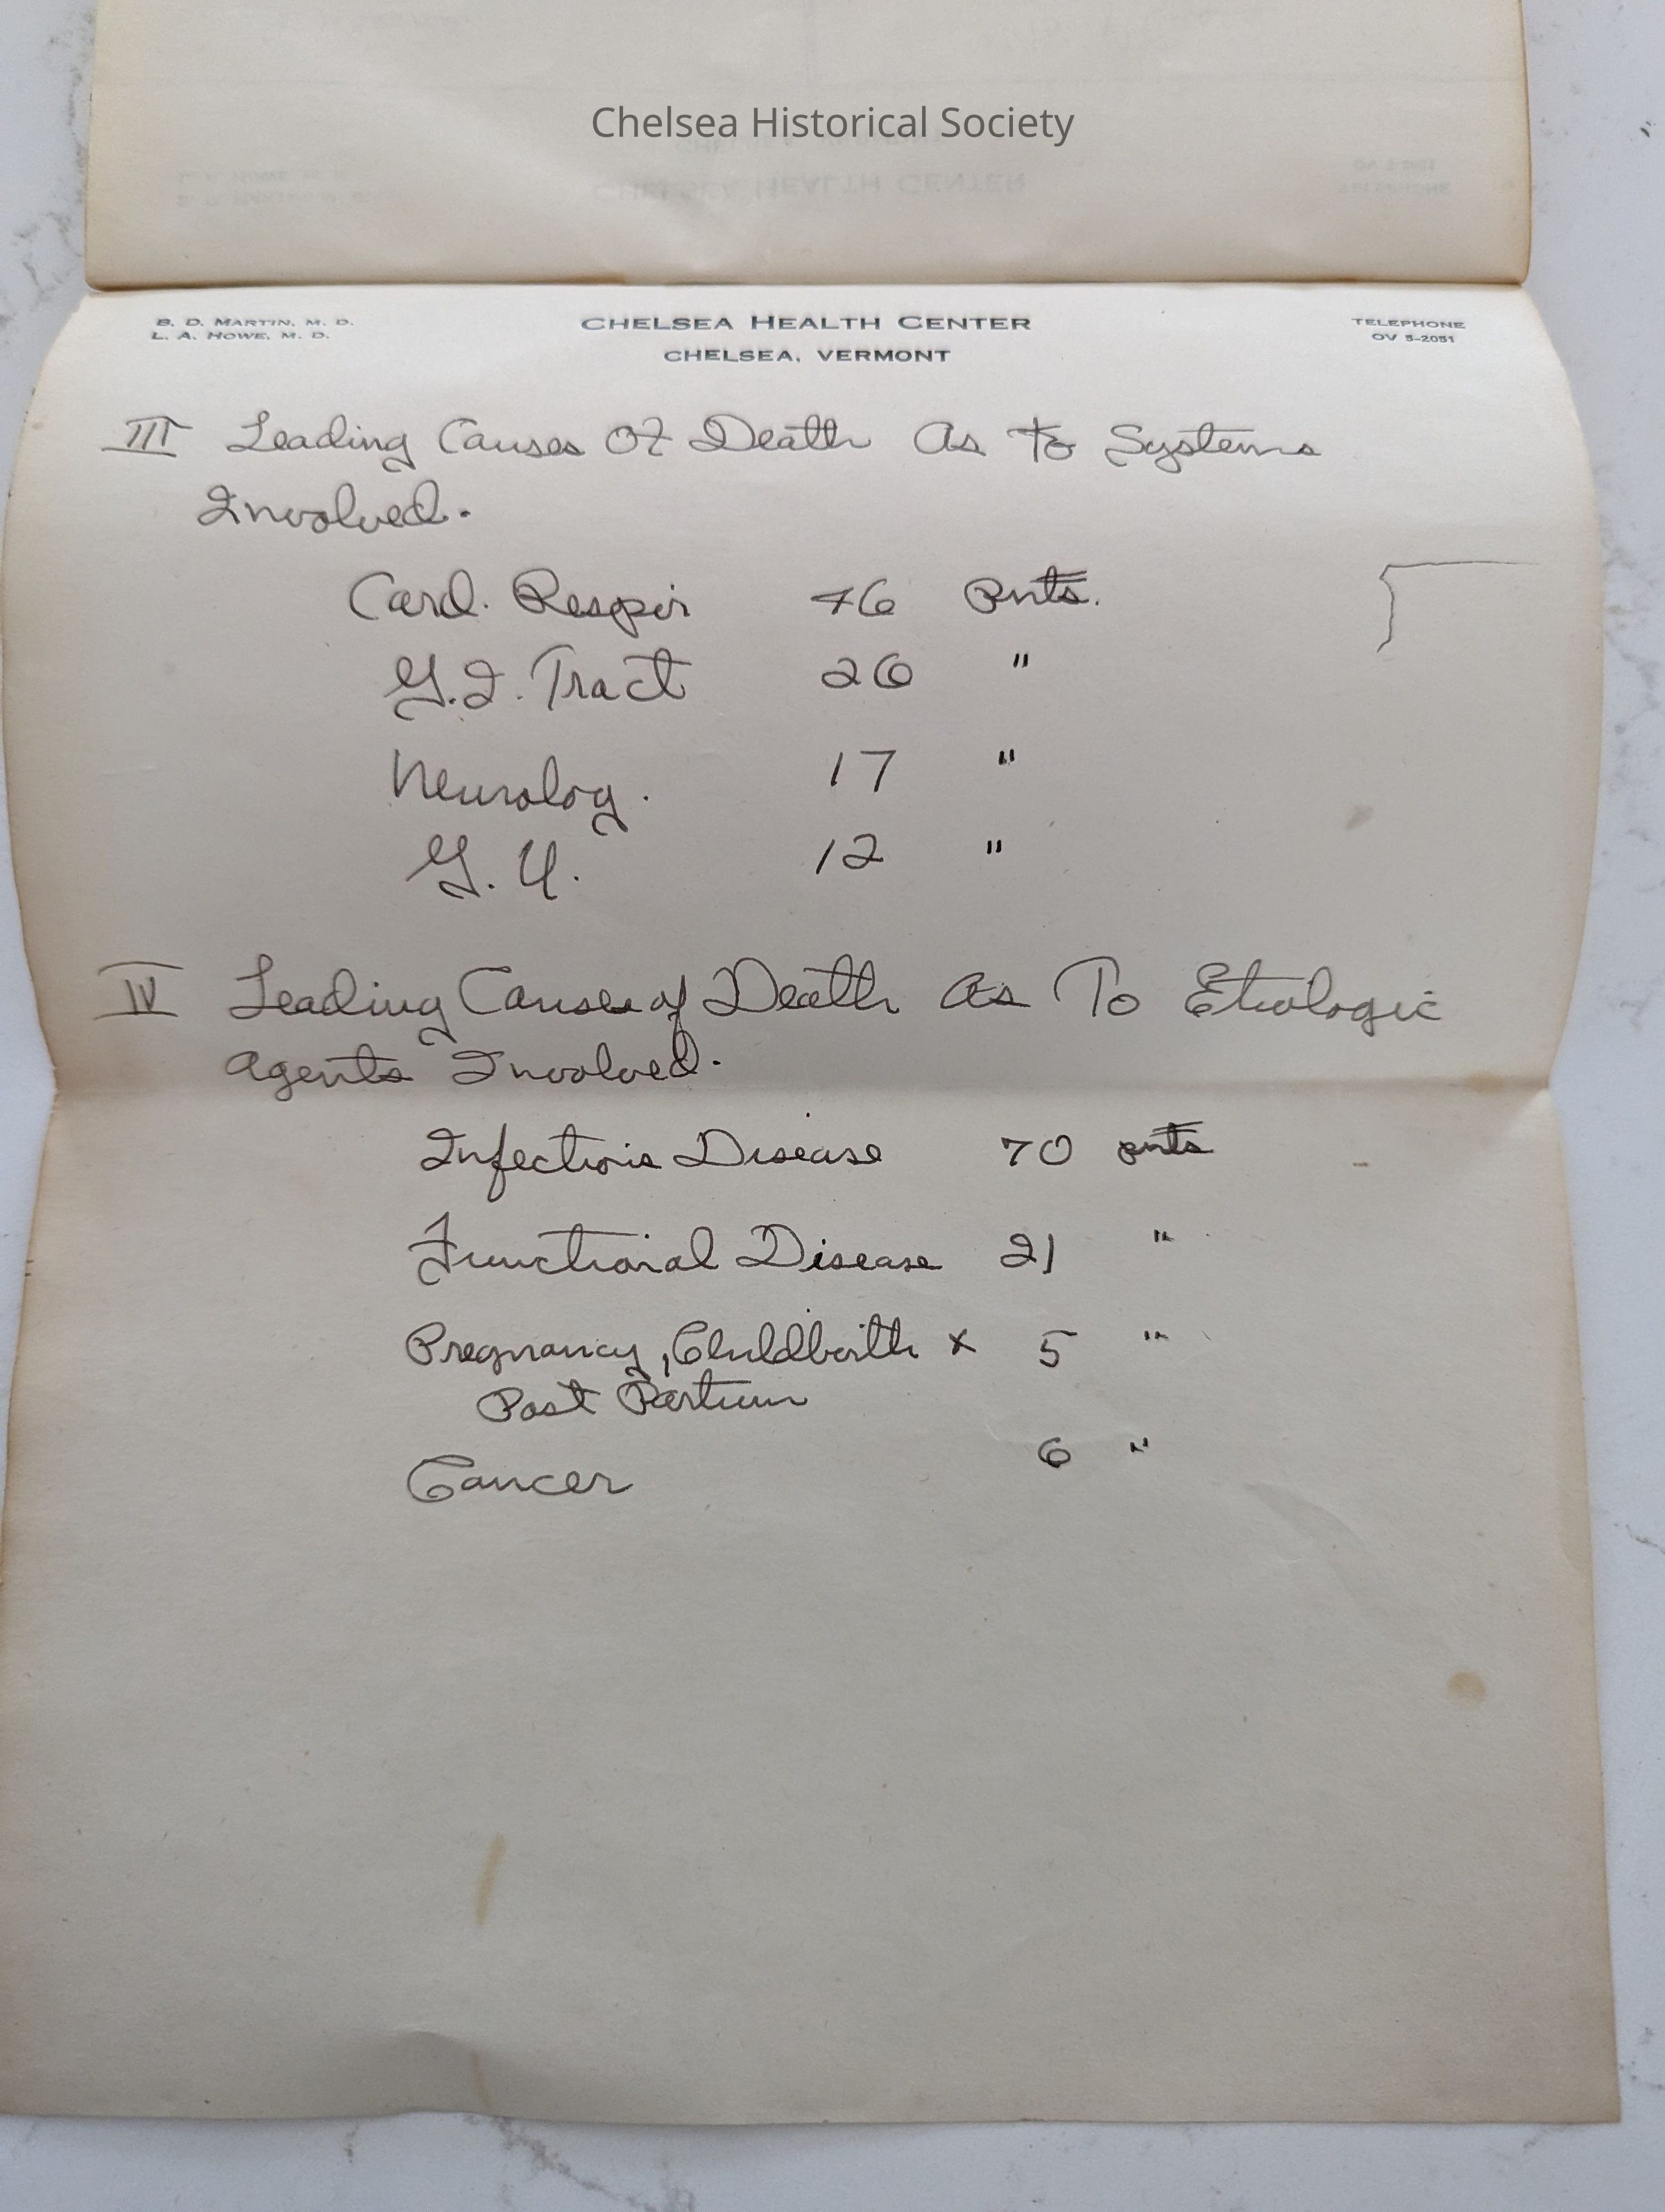 Chelsea Historical Society
B. D. MARTIN, M. D.
L. A. HOWE, M. D.
CHELSEA HEALTH CENTER
CHELSEA, VERMONT
TELEPHONE
OV 5-2051
III Leading Causes Of Death As To Systems
Involved.
Card. Respir 46 Pnts.
G.I. Tract 26 "
Neurolog. 17 "
G.U. 12 "
IV Leading Causes of Death As To Etiologic
Agents Involved.
Infectious Disease 70 pnts
Functional Disease 21 "
Pregnancy, Childbirth + 5 "
Post Partum
Cancer 6 "